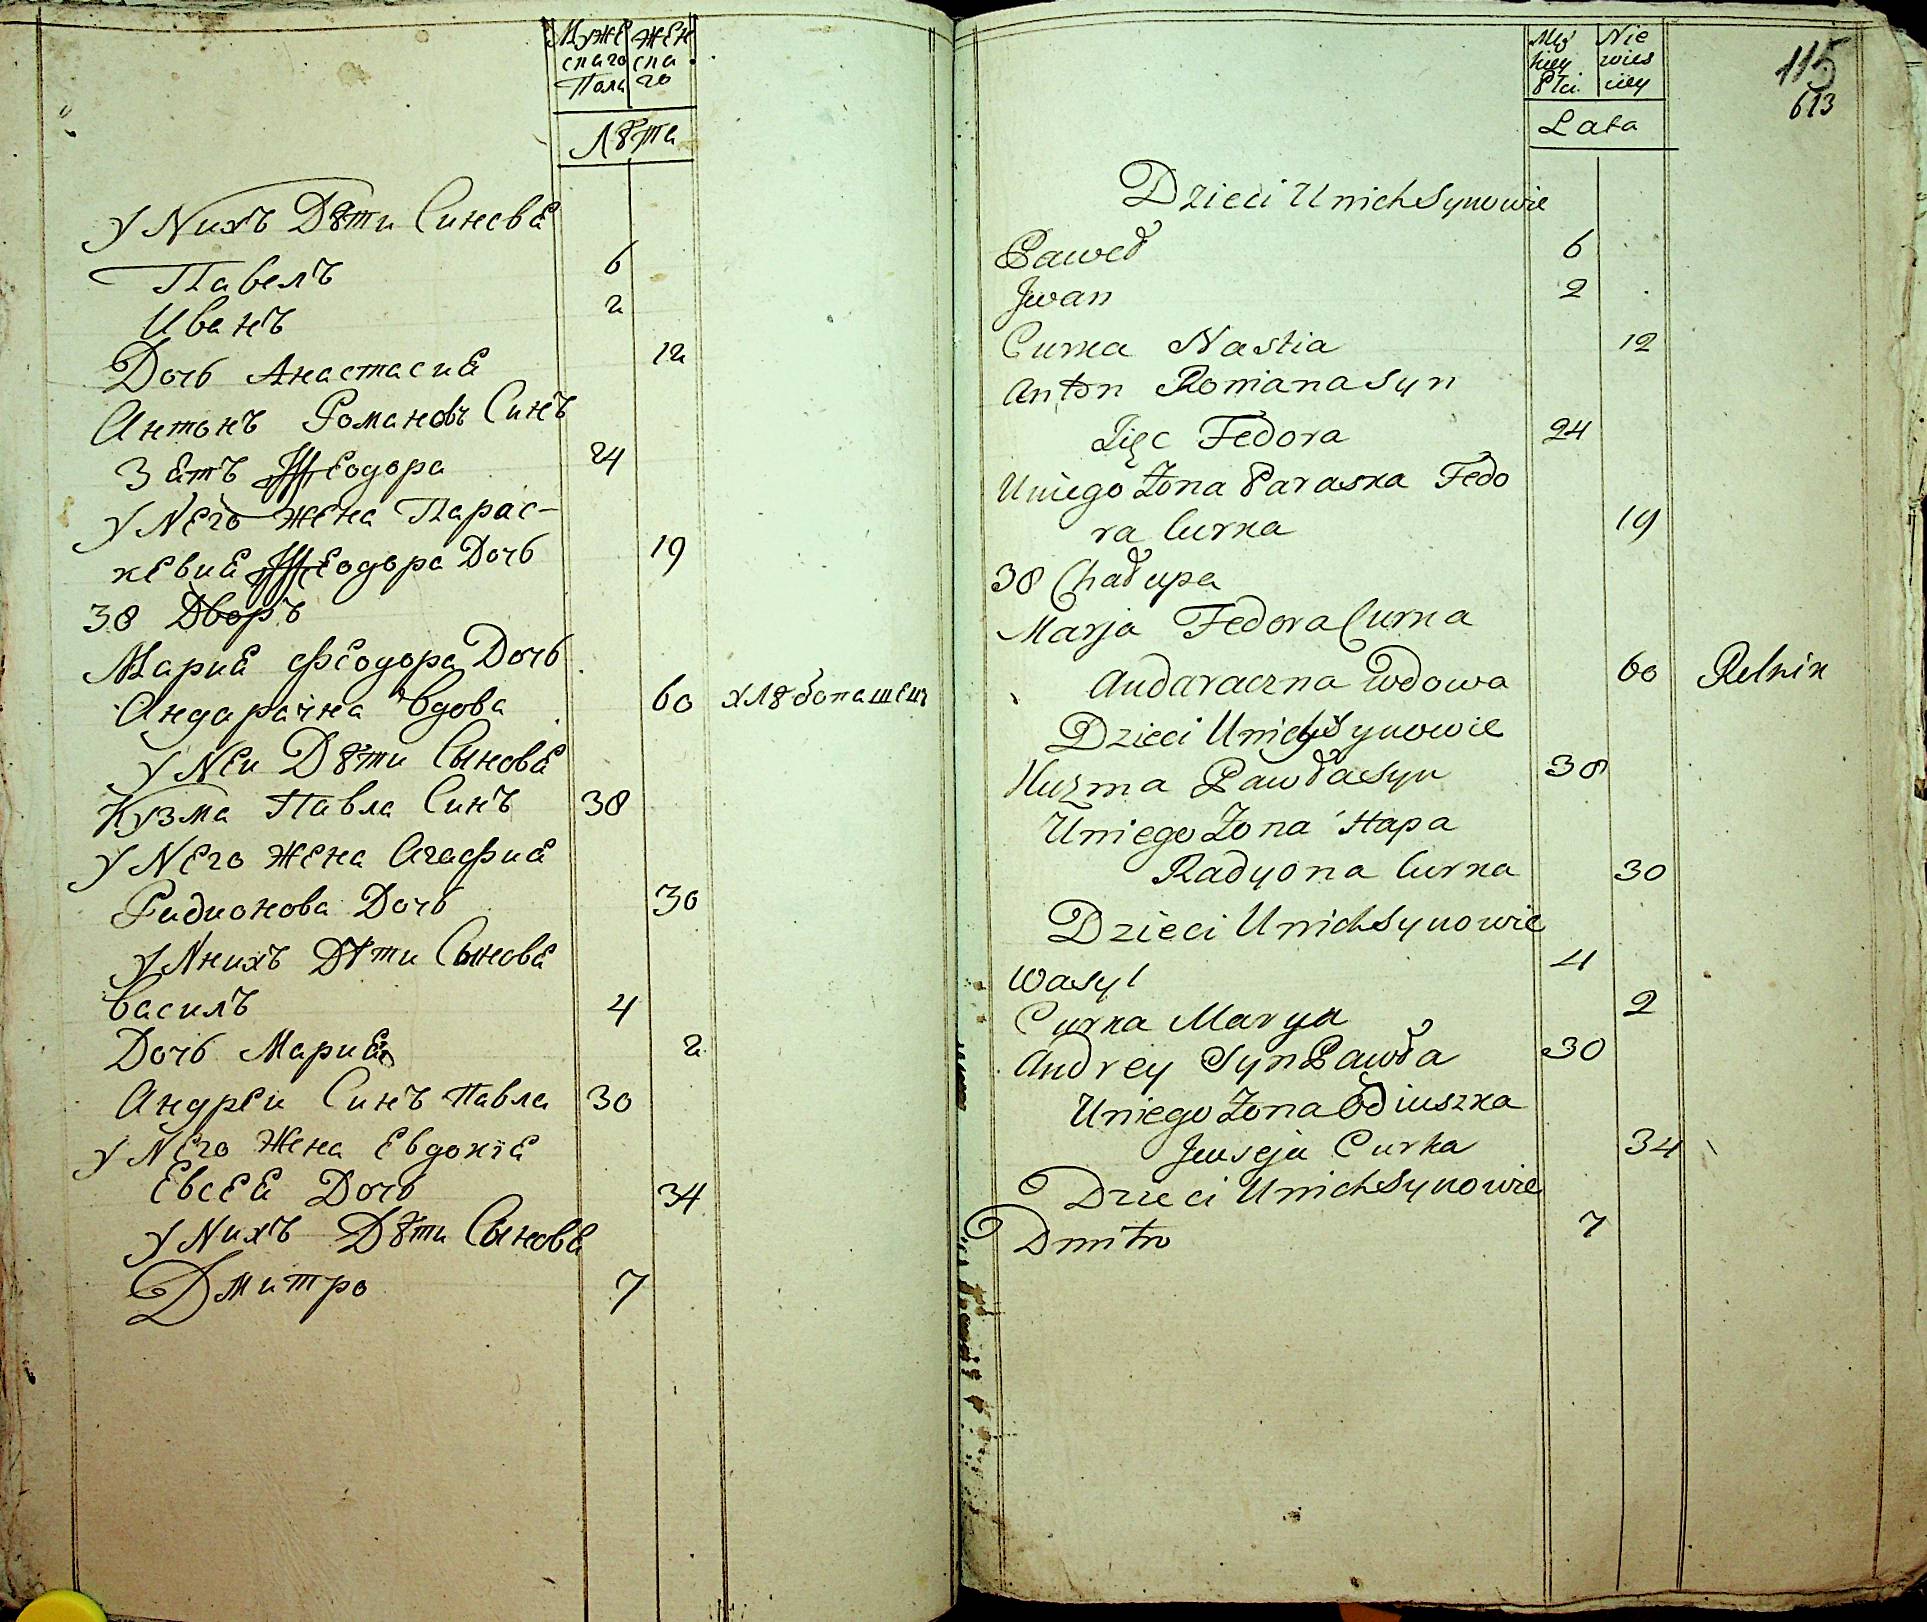 Муже Жен
скаго ска
Пола го
Лѣта
У Нихъ Дѣти Синовѣ
Павелъ 6
Иванъ 2
Дочь Анастасиѣ 12
Антонъ Романовъ Синъ
Зѣтъ Ѳеодора 24
У Него Жена Парас-
кевиѣ Ѳеодора Дочь 19
38 Дворъ
Мариѣ Феодора Дочь
Андарачна Вдова 60 хлѣбопашец
У Неи Дѣти Сыновѣ
Кузма Павла Синъ 38
У Него Жена Агафиѣ
Радионова Дочь 30
У Нихъ Дѣти Сыновѣ
Василъ 4
Дочь Мариѣ 2
Андреи Синъ Павла 30
У Него Жена Евдокіѣ
Евсеѣ Дочь 34
У Нихъ Дѣти Сыновѣ
Дмитро 7
Mę Nie
skiey wies
Płci ciey
115
613
Lata
Dzieci U nich Synowie
Paweł 6
Jwan 2
Curka Nastia 12
Anton Romana Syn
Zięc Fedora 24
U niego Żona Paraska Fedo
ra Curka 19
38 Chałupa
Marja Fedora Curka
Andaraczna Wdowa 60 Rolnik
Dzieci U nich Synowie
Kuzma Pawła Syn 38
U niego Żona Hapa
Radyona Curka 30
Dzieci U nich Synowie
Wasyl 4
Curka Marya 2
Andrey Syn Pawła 30
U niego Żona Odiuszka
Jewseja Curka 34
Dzieci U nich Synowie
Dmitro 7